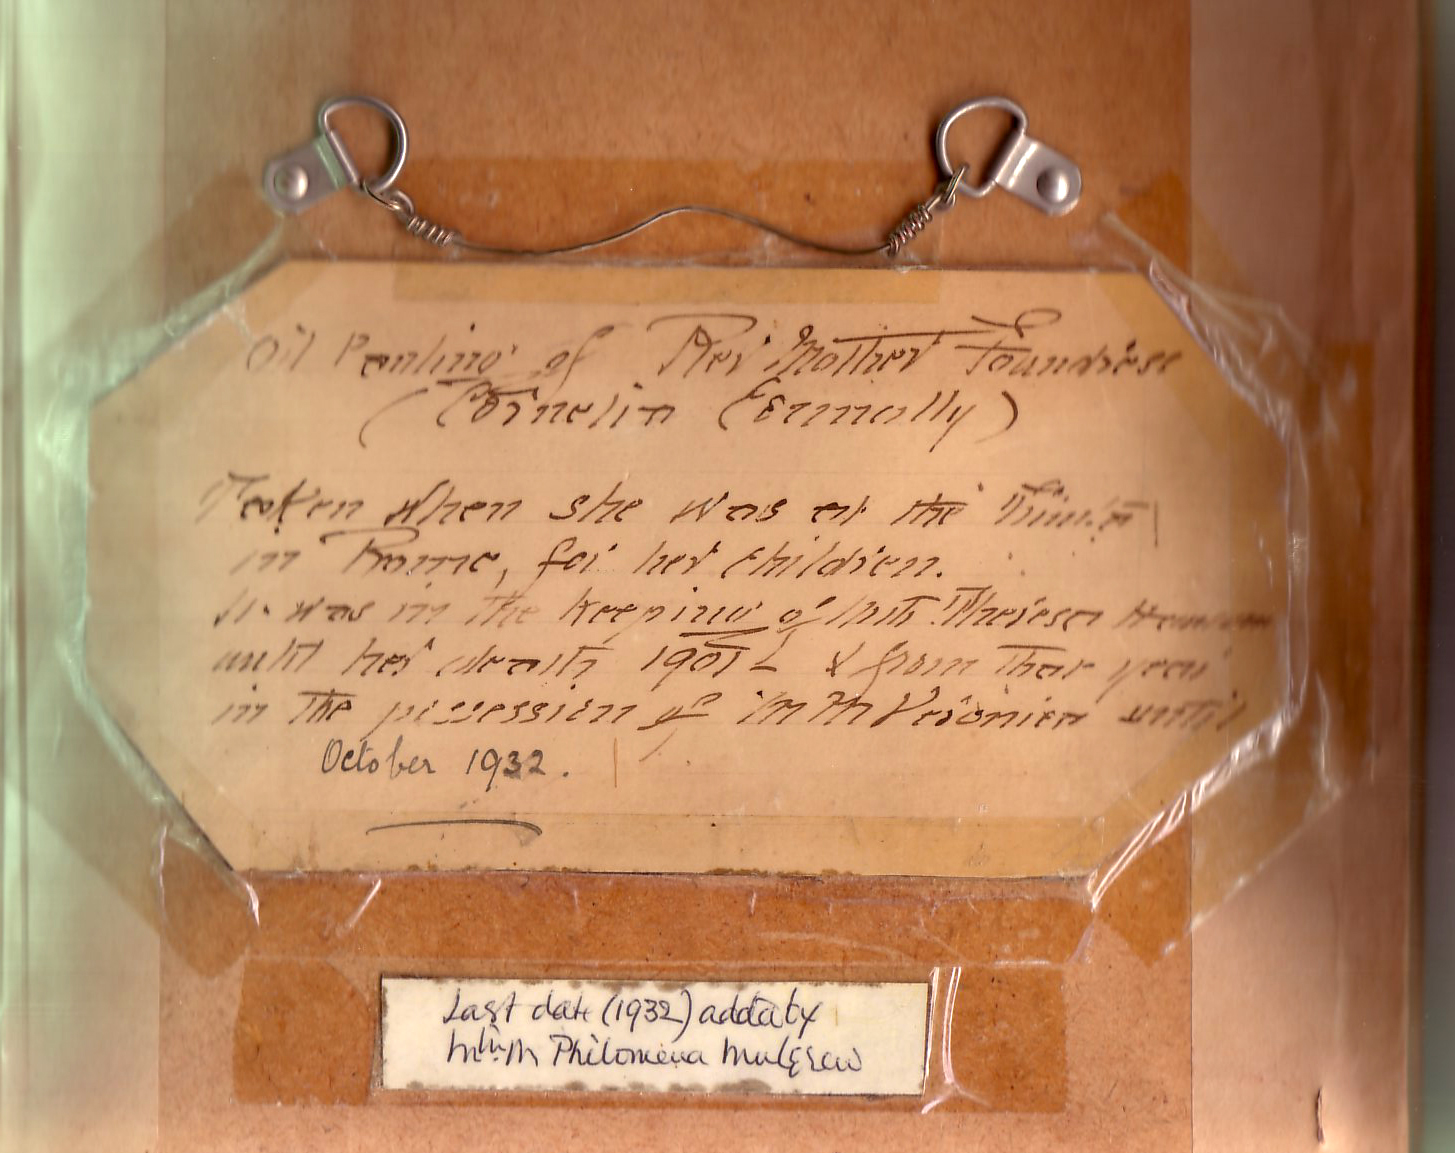 Oil Painting of Rev Mother Foundress
(Cornelia Connolly)
Taken when she was at the Trinità
in Rome, for her children.
It was in the keeping of Mth. Theresa
until her death 1901 - & from that year
in the possession of M M Veronica until
October 1932.
Last date (1932) added by
Mth. M Philomena Mulgrew